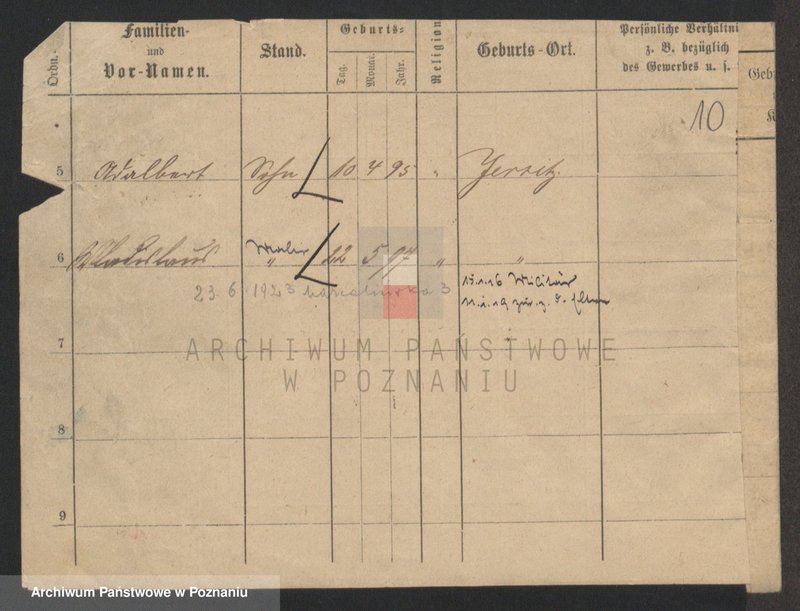 Familien-
und
Vor-Namen.
Stand.
Geburts-
Tag.
Monat.
Jahr.
Religion
Geburts-Ort.
Persönliche Verhältni
z. B. bezüglich
des Gewerbes u. s.
Ordn.
Geb
10
5 Adalbert Sohn 10 4 95 " Jersitz.
6 Wladislaus Maler " 22 5 97 " "
23. 6. 1923 3
15.1.16 Militär
11.1.19 zur. z. d. Eltern
7
8
9
ARCHIWUM PAŃSTWOWE
W POZNANIU
Archiwum Państwowe w Poznaniu